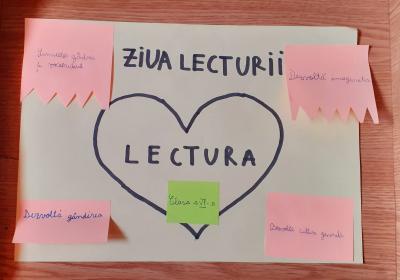 ZIUA LECTURII
gândirea
și vocabularul
Dezvoltă imaginația
LECTURA
Clasa a VI-a
Dezvoltă gândirea
Dezvoltă cultura generală